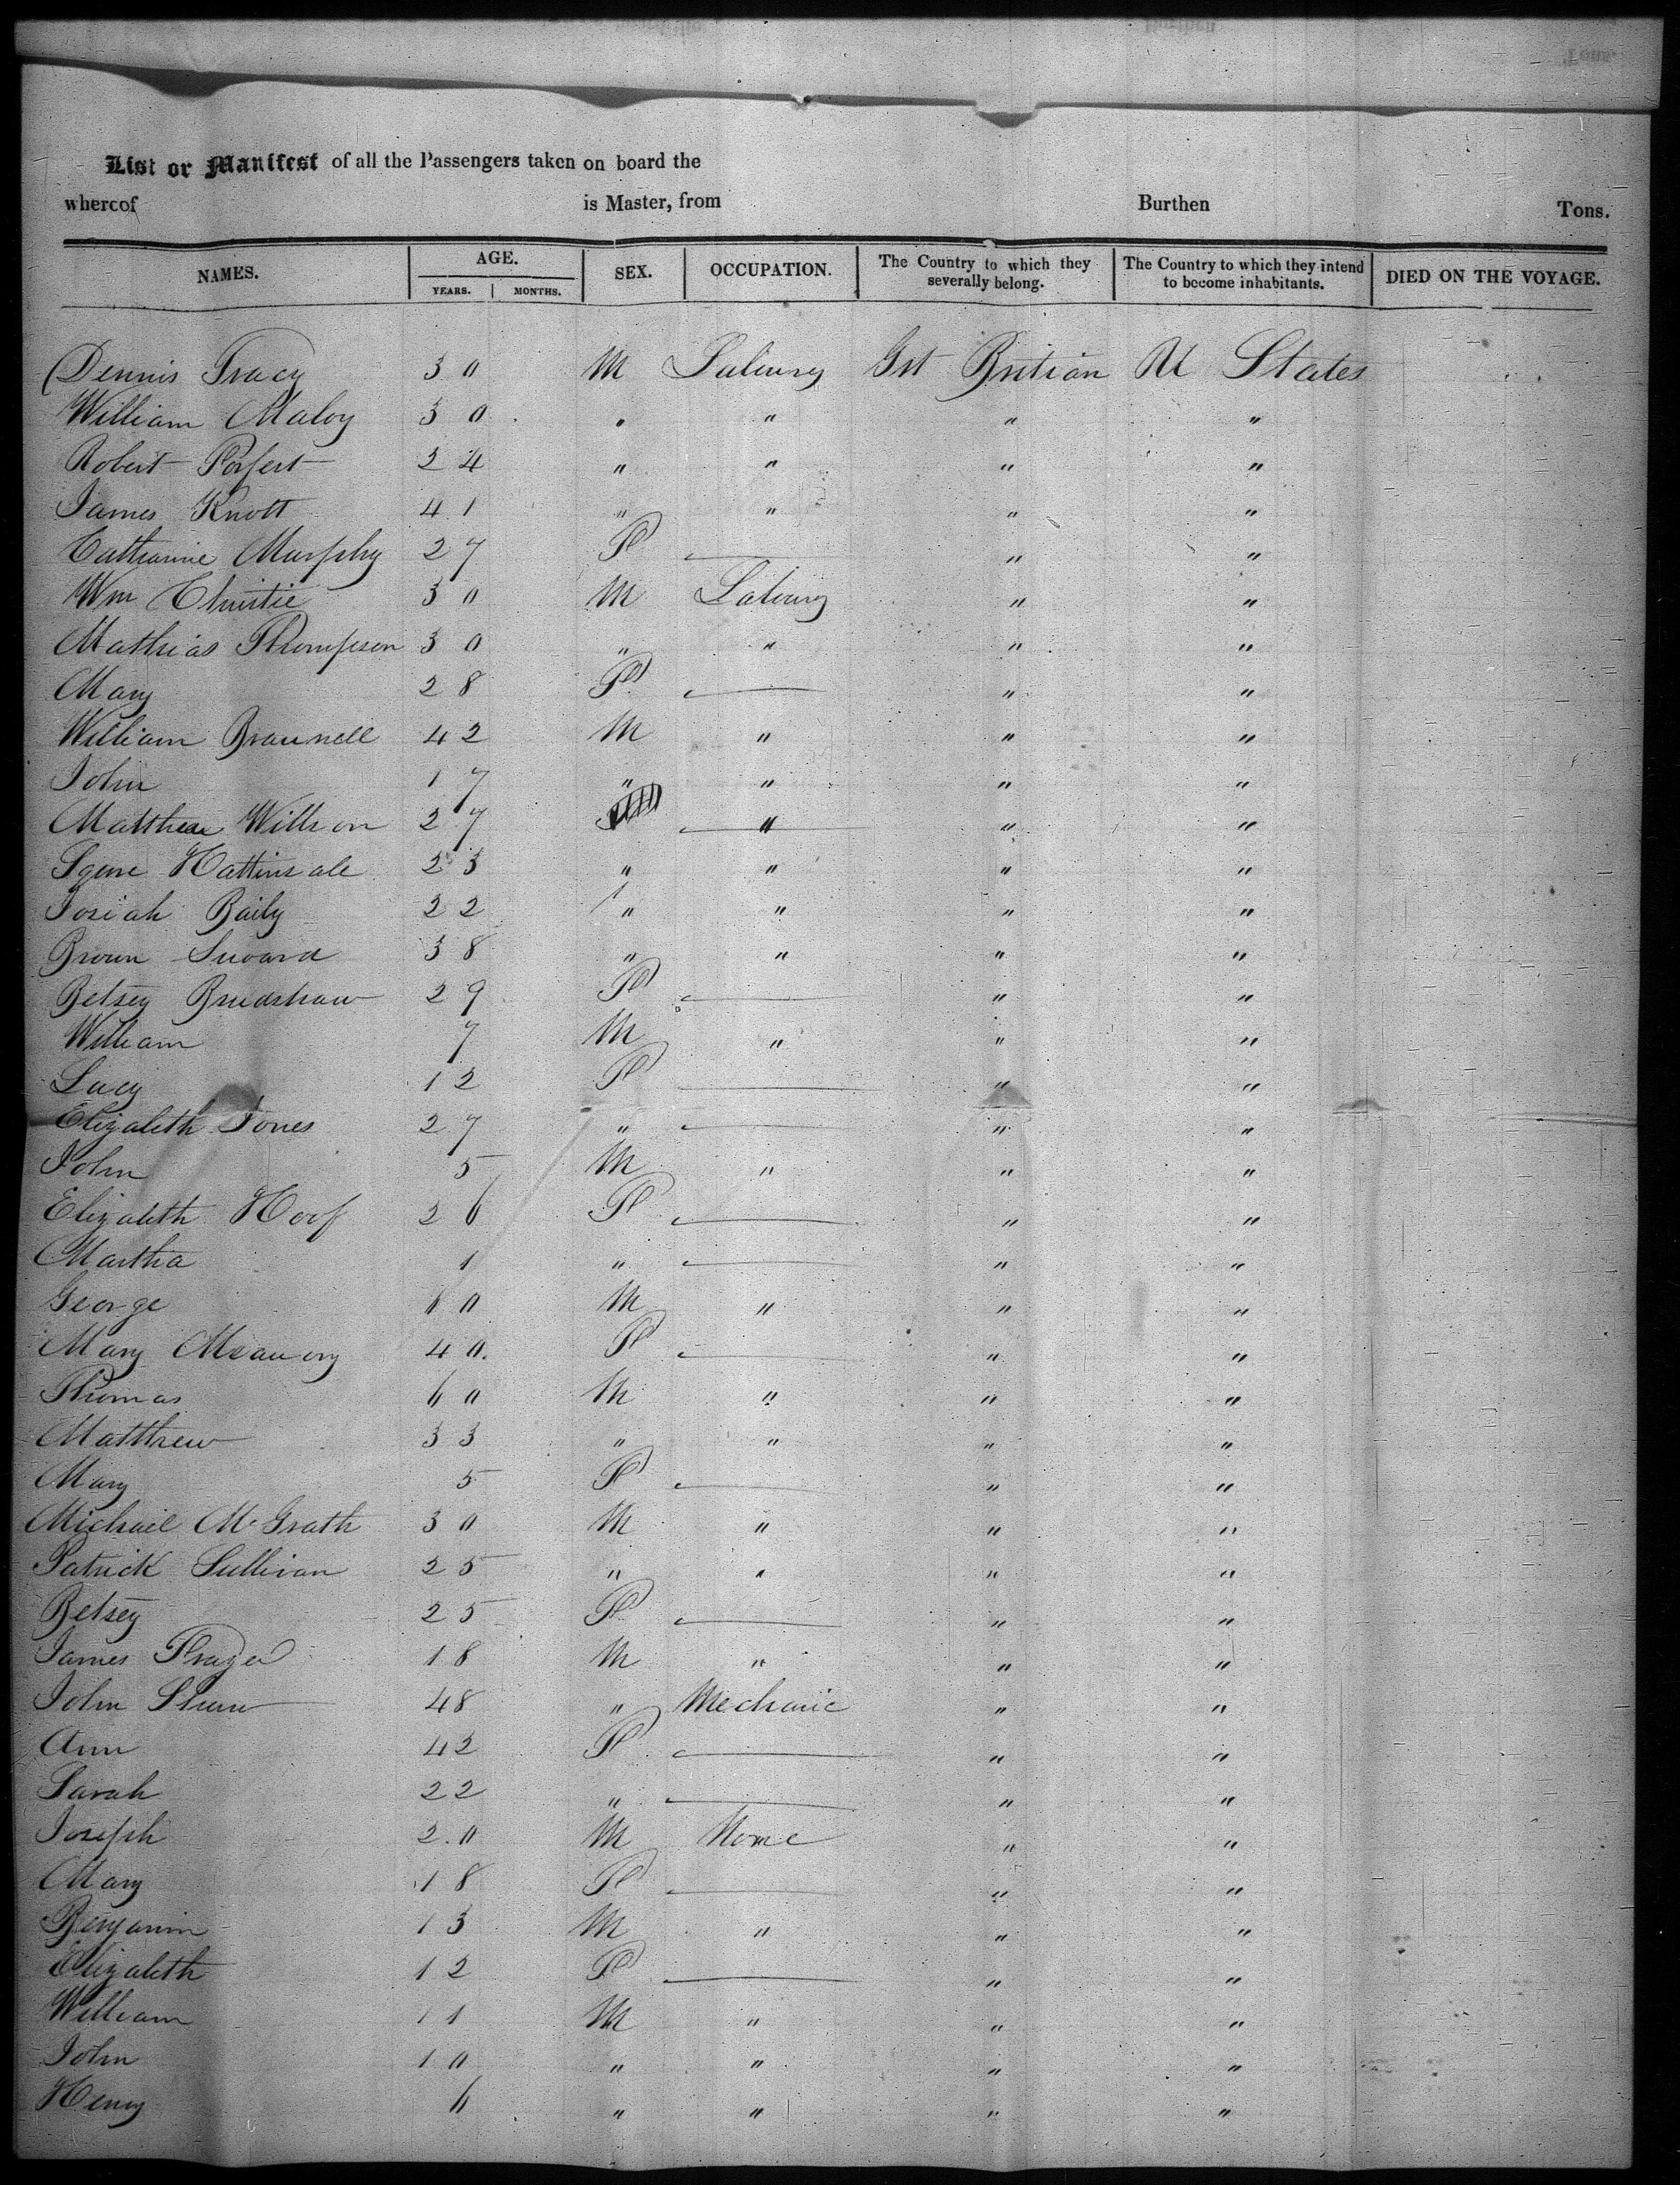 List or Manifest of all the Passengers taken on board the
whereof is Master, from Burthen Tons.
NAMES. AGE. SEX. OCCUPATION. The Country to which they severally belong. The Country to which they intend to become inhabitants. DIED ON THE VOYAGE.
YEARS. MONTHS.
Dennis Tracy 30 M Gst Britian U States
William Maloy 30 " " " "
Robert 24 " " " "
James Knott 41 " " " "
Catharine Murphy 27 F — " "
Wm Christie 30 M " "
Mathias Thompson 30 " " " "
Mary 28 F — " "
William 42 M " " "
John 17 " " " "
Matthew Willson 27 " " "
23 " " " "
Josiah Baily 22 " " " "
Brown 38 " " " "
Betsey Bradshaw 29 F — " "
William 7 M " " "
Lucy 12 F — " "
Elizabeth Jones 27 " — " "
John 5 M " " "
Elizabeth Hoof 26 F — " "
Martha 1 " — " "
George 60 M " " "
Mary 40 F — " "
Thomas 60 M " " "
Matthew 33 " " " "
Mary 5 F — " "
Michael McGrath 30 M " " "
Patrick Sullivan 25 " " " "
Betsey 25 F — " "
James 18 M " " "
John 48 " Mechanic " "
Ann 42 F — " "
Sarah 22 " — " "
Joseph 20 M None " "
Mary 18 F — " "
Benjamin 13 M " " "
Elizabeth 12 F — " "
William 11 M " " "
John 10 " " " "
Henry 6 " " " "